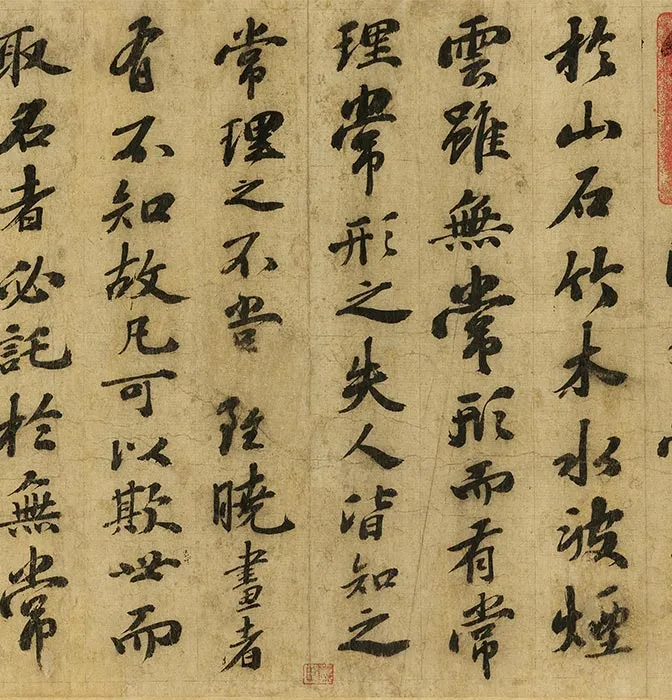 於山石竹木水波煙
雲雖無常形而有常
理常形之失人皆知之
常理之不當雖曉畫者
有不知故凡可以欺世而
取名者必託於無常